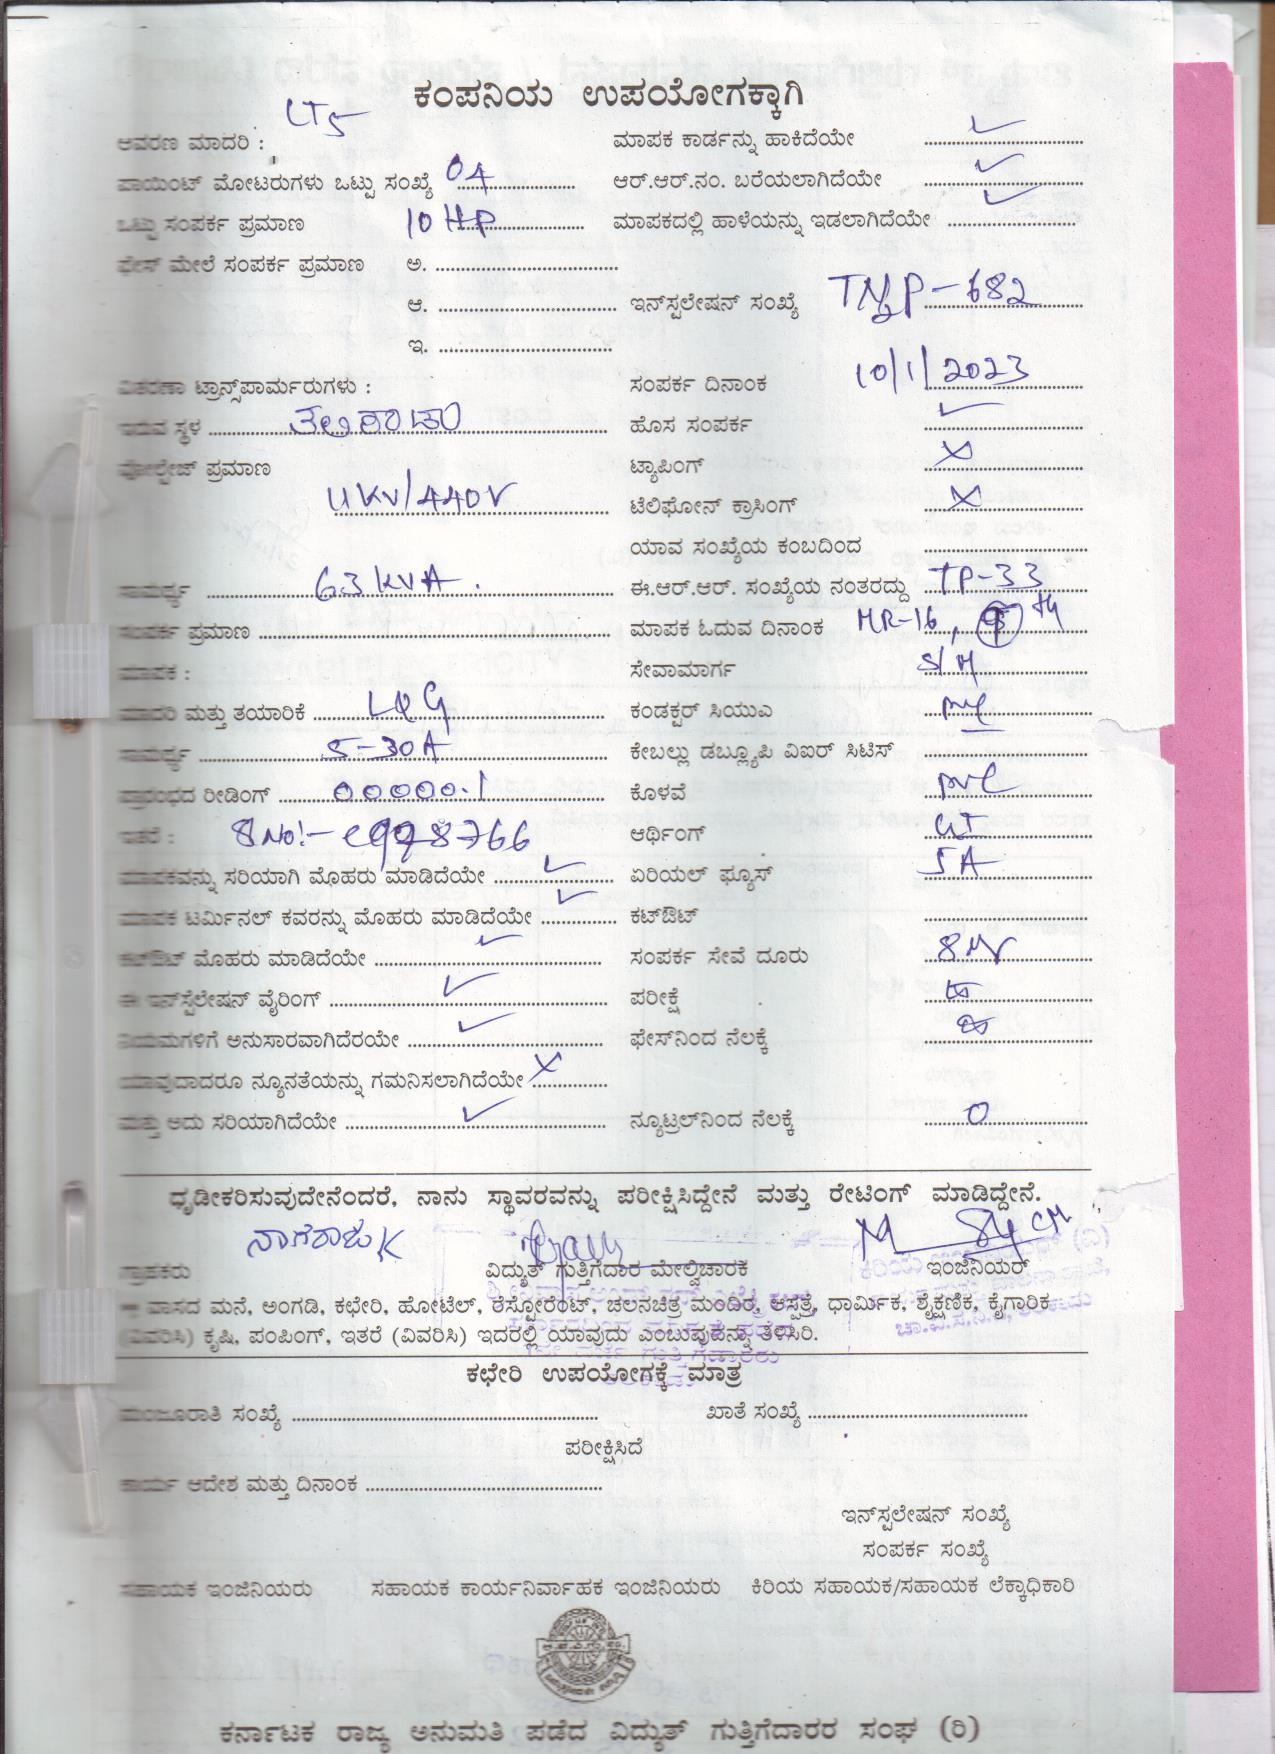 ಕಂಪನಿಯ ಉಪಯೋಗಕ್ಕಾಗಿ
LT5
ಆವರಣ ಮಾದರಿ : ಮಾಪಕ ಕಾರ್ಡನ್ನು ಹಾಕಿದೆಯೇ ✓
ಪಾಯಿಂಟ್ ಮೋಟರುಗಳು ಒಟ್ಟು ಸಂಖ್ಯೆ 04 ಆರ್.ಆರ್.ನಂ. ಬರೆಯಲಾಗಿದೆಯೇ ✓
ಒಟ್ಟು ಸಂಪರ್ಕ ಪ್ರಮಾಣ 10 HP ಮಾಪಕದಲ್ಲಿ ಹಾಳೆಯನ್ನು ಇಡಲಾಗಿದೆಯೇ ✓
ಫೇಸ್ ಮೇಲೆ ಸಂಪರ್ಕ ಪ್ರಮಾಣ ಅ.
ಆ. ಇನ್‌ಸ್ಟಲೇಷನ್ ಸಂಖ್ಯೆ TNP-682
ಇ.
ವಿತರಣಾ ಟ್ರಾನ್ಸ್‌ಪಾರ್ಮರುಗಳು : ಸಂಪರ್ಕ ದಿನಾಂಕ 10/1/2023
ಇರುವ ಸ್ಥಳ ಹೊಸ ಸಂಪರ್ಕ ✓
ವೋಲ್ಟೇಜ್ ಪ್ರಮಾಣ ಟ್ಯಾಪಿಂಗ್ ×
11KV/440V ಟೆಲಿಫೋನ್ ಕ್ರಾಸಿಂಗ್ ×
ಯಾವ ಸಂಖ್ಯೆಯ ಕಂಬದಿಂದ
ಸಾಮರ್ಥ್ಯ 63 KVA . ಈ.ಆರ್.ಆರ್. ಸಂಖ್ಯೆಯ ನಂತರದ್ದು TP-33
ಸಂಪರ್ಕ ಪ್ರಮಾಣ ಮಾಪಕ ಓದುವ ದಿನಾಂಕ MR-16,
ಮಾಪಕ : ಸೇವಾಮಾರ್ಗ S/M
ಮಾದರಿ ಮತ್ತು ತಯಾರಿಕೆ L&G ಕಂಡಕ್ಟರ್ ಸಿಯುಎ
ಸಾಮರ್ಥ್ಯ 5-30A ಕೇಬಲ್ಲು ಡಬ್ಲ್ಯೂಪಿ ವಿಐರ್ ಸಿಟಿಸ್
ಪ್ರಾರಂಭದ ರೀಡಿಂಗ್ 00000.1 ಕೊಳವೆ PVC
ಇತರೆ : SNO:- ಆರ್ಥಿಂಗ್ GI
ಮಾಪಕವನ್ನು ಸರಿಯಾಗಿ ಮೊಹರು ಮಾಡಿದೆಯೇ ✓ ಏರಿಯಲ್ ಫ್ಯೂಸ್ 5A
ಮಾಪಕ ಟರ್ಮಿನಲ್ ಕವರನ್ನು ಮೊಹರು ಮಾಡಿದೆಯೇ ✓ ಕಟ್‌ಔಟ್
ಕಟ್‌ಔಟ್ ಮೊಹರು ಮಾಡಿದೆಯೇ ✓ ಸಂಪರ್ಕ ಸೇವೆ ದೂರು
ಈ ಇನ್‌ಸ್ಟೆಲೇಷನ್ ವೈರಿಂಗ್ ✓ ಪರೀಕ್ಷೆ
ನಿಯಮಗಳಿಗೆ ಅನುಸಾರವಾಗಿದೆರಯೇ ✓ ಫೇಸ್‌ನಿಂದ ನೆಲಕ್ಕೆ
ಯಾವುದಾದರೂ ನ್ಯೂನತೆಯನ್ನು ಗಮನಿಸಲಾಗಿದೆಯೇ ×
ಮತ್ತು ಅದು ಸರಿಯಾಗಿದೆಯೇ ✓ ನ್ಯೂಟ್ರಲ್‌ನಿಂದ ನೆಲಕ್ಕೆ 0
ಧೃಡೀಕರಿಸುವುದೇನೆಂದರೆ, ನಾನು ಸ್ಥಾವರವನ್ನು ಪರೀಕ್ಷಿಸಿದ್ದೇನೆ ಮತ್ತು ರೇಟಿಂಗ್ ಮಾಡಿದ್ದೇನೆ.
ನಾಗರಾಜು K
ಗ್ರಾಹಕರು ವಿದ್ಯುತ್ ಗುತ್ತಿಗೆದಾರ ಮೇಲ್ವಿಚಾರಕ ಇಂಜಿನಿಯರ್
ವಾಸದ ಮನೆ, ಅಂಗಡಿ, ಕಛೇರಿ, ಹೋಟೆಲ್, ರೆಸ್ಟೋರೆಂಟ್, ಚಲನಚಿತ್ರ ಮಂದಿರ, ಆಸ್ಪತ್ರೆ, ಧಾರ್ಮಿಕ, ಶೈಕ್ಷಣಿಕ, ಕೈಗಾರಿಕ
(ವಿವರಿಸಿ) ಕೃಷಿ, ಪಂಪಿಂಗ್, ಇತರೆ (ವಿವರಿಸಿ) ಇದರಲ್ಲಿ ಯಾವುದು ಎಂಬುವುದನ್ನು ತಿಳಿಸಿರಿ.
ಕಛೇರಿ ಉಪಯೋಗಕ್ಕೆ ಮಾತ್ರ
ಮಂಜೂರಾತಿ ಸಂಖ್ಯೆ ಖಾತೆ ಸಂಖ್ಯೆ
ಪರೀಕ್ಷಿಸಿದೆ
ಕಾರ್ಯ ಆದೇಶ ಮತ್ತು ದಿನಾಂಕ
ಇನ್‌ಸ್ಟಲೇಷನ್ ಸಂಖ್ಯೆ
ಸಂಪರ್ಕ ಸಂಖ್ಯೆ
ಸಹಾಯಕ ಇಂಜಿನಿಯರು ಸಹಾಯಕ ಕಾರ್ಯನಿರ್ವಾಹಕ ಇಂಜಿನಿಯರು ಕಿರಿಯ ಸಹಾಯಕ/ಸಹಾಯಕ ಲೆಕ್ಕಾಧಿಕಾರಿ
ಕರ್ನಾಟಕ ರಾಜ್ಯ ಅನುಮತಿ ಪಡೆದ ವಿದ್ಯುತ್ ಗುತ್ತಿಗೆದಾರರ ಸಂಘ (ರಿ)